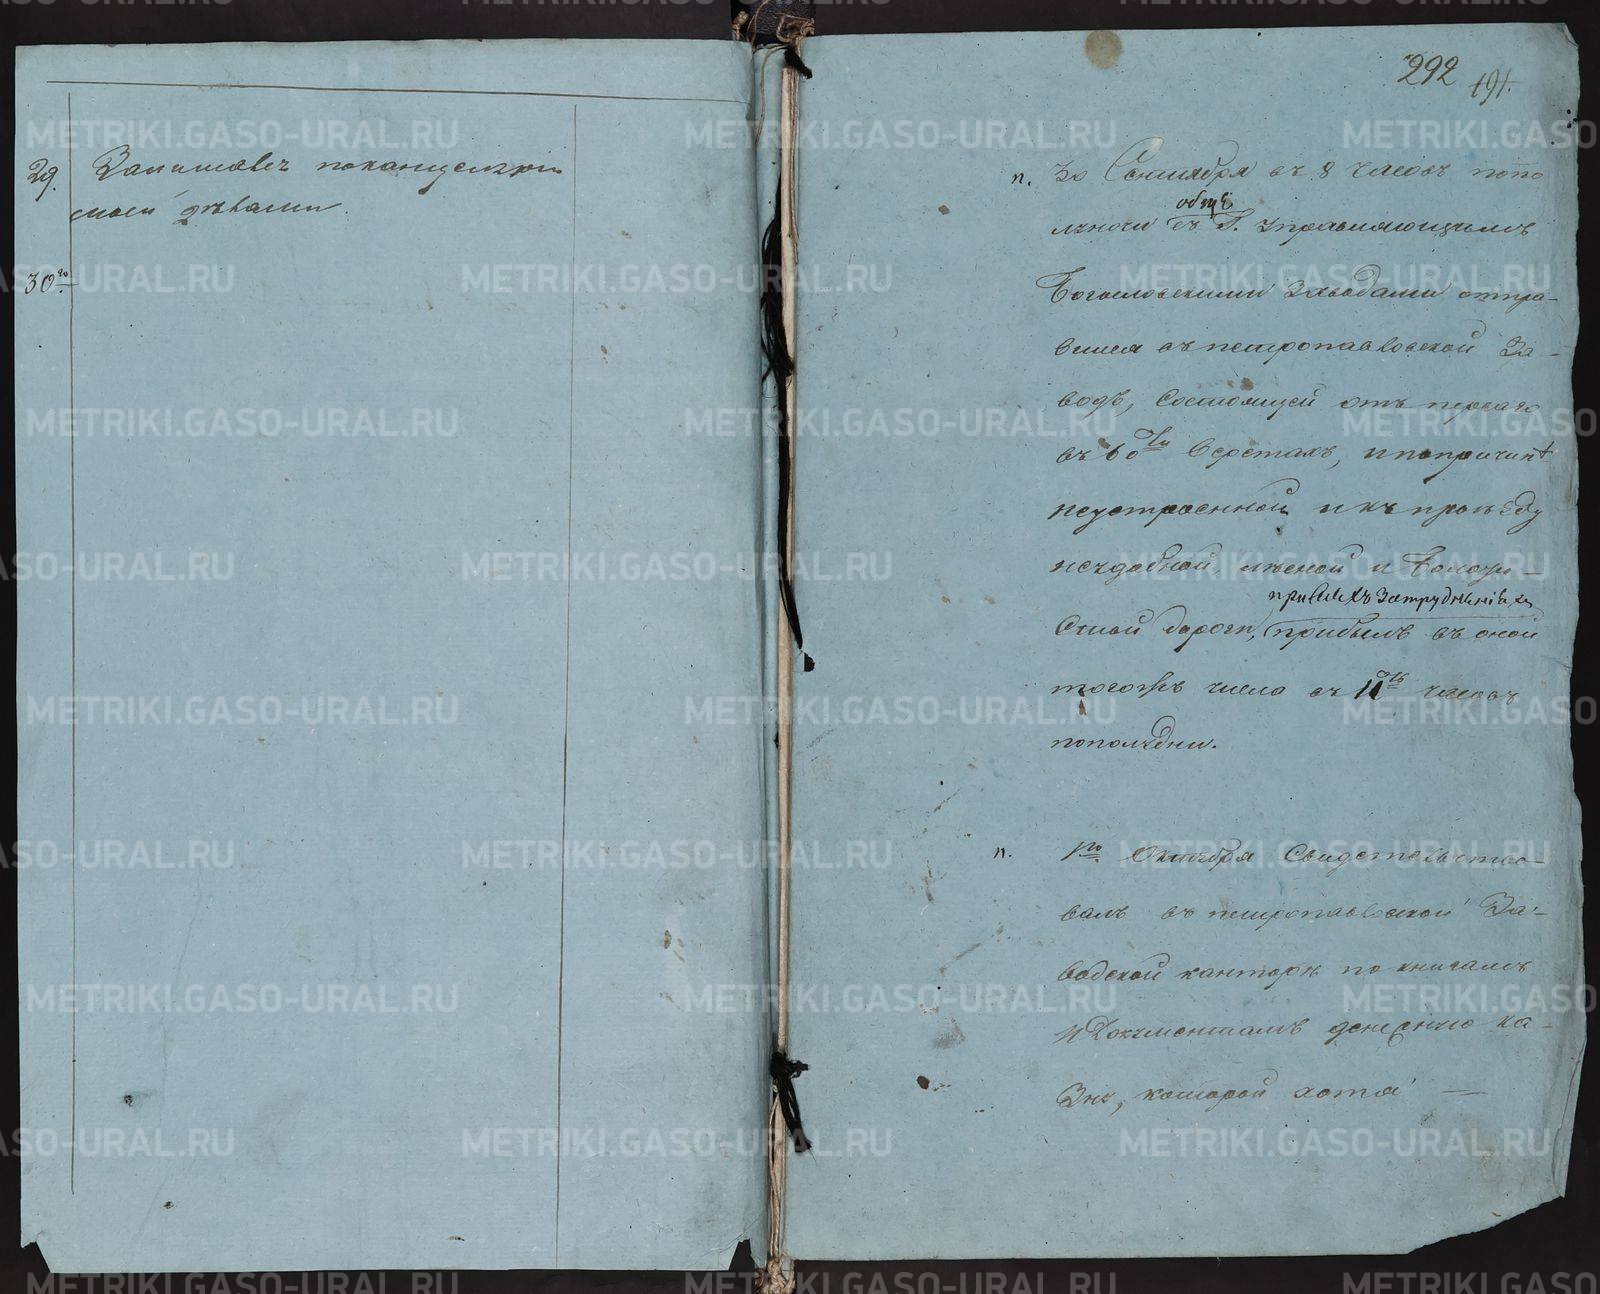 29. Занимался по канцеляр
скими делами.
30го
292 191.
п. 30 Сентября въ 8 часовъ попо
общѣ
луночи съ Г. управляющимъ
Богословскими Заводами отпра-
вился въ петропавловской За-
водъ, состоящей отъ перваго
въ 60ти верстахъ, и по причинѣ
неустроенной и къ проѣзду
неудобной, лѣсной и болоти-
стой дороги, прибылъ въ оной
тогожъ числа въ 11ть часовъ
пополудни.
п. 1го Октября Свидетельство-
валъ въ петропавловской За-
водской канторѣ по книгамъ
и документамъ денежную ка-
зну, которой хотя —
METRIKI.GASO-URAL.RU